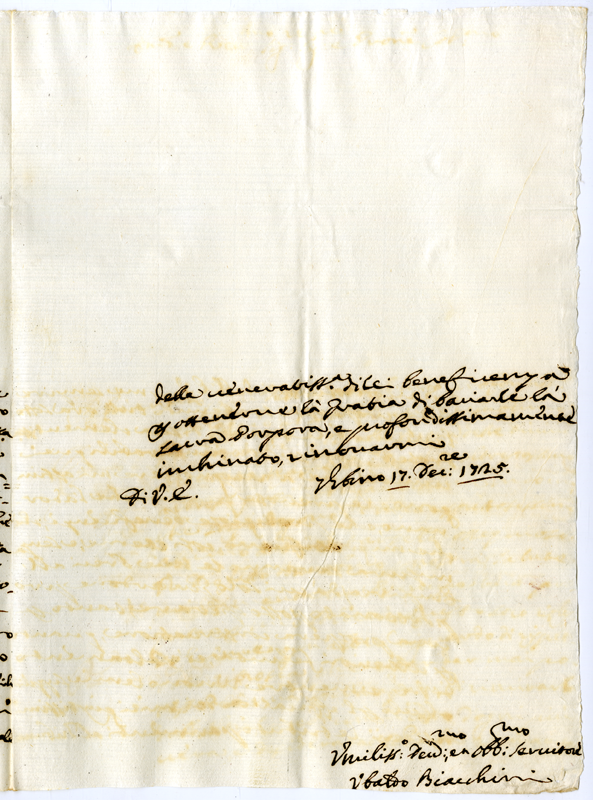 della venerabiss.ª di lei beneficenza
p ottenerne la gratia di baciarle la
sacra Porpora, e profondissimamente
inchinato, rinovarmi
Di V. E.
Urbino 17. Dec:re 1725.
Umiliss:o Dev:mo, ed Obb:mo Servitore
Ubaldo Biacchini